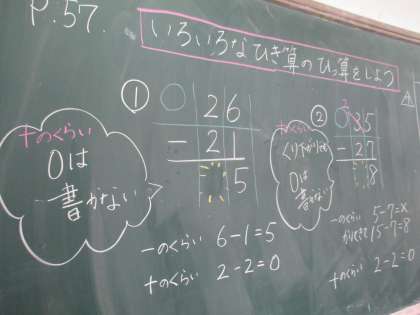 P.57.
いろいろなひき算のひっ算をしよう
① 0 26
- 21
5
十のくらい
0は
書かない
一のくらい 6-1=5
十のくらい 2-2=0
② 2
0 35
- 27
8
十のくらい
くり下がりで
0は
書かない
一のくらい 5-7=×
かりてきて 15-7=8
十のくらい 2-2=0